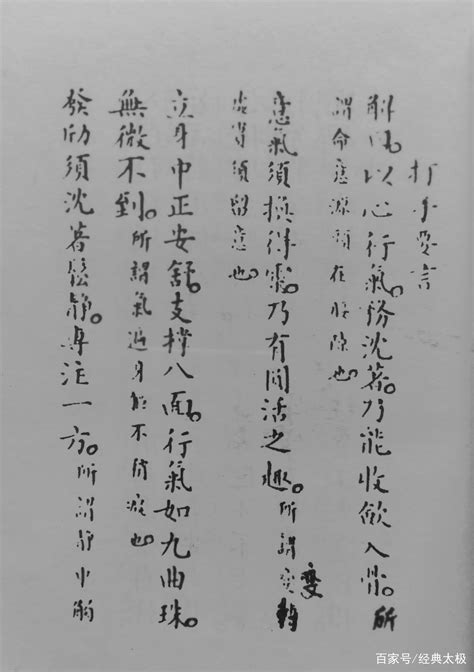 打手要言
解曰。以心行氣。務沈著。乃能收斂入骨。所
謂命意源頭在腰隙也。
意氣須換得靈。乃有圓活之趣。所謂变變轉
虛實須留意也。
立身中正安舒。支撐八面。行氣如九曲珠。
無微不到。所謂氣遍身軀不稍滯也
發勁須沈著鬆靜。專注一方。所謂靜中觸
百家号/经典太极